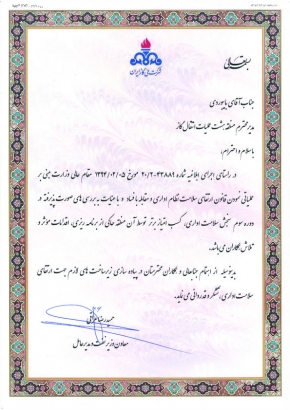 بسمه تعالی
شرکت ملی گاز ایران
جناب آقای بایبوردی
مدیر محترم منطقه هشت عملیات انتقال گاز
با سلام و احترام؛
در راستای اجرای ابلاغیه شماره ۲۰/۲-۴۳۸۸۹ مورخ ۱۳۹۴/۰۲/۰۵ مقام عالی وزارت مبنی بر
عملیاتی نمودن قانون ارتقای سلامت نظام اداری و مقابله با فساد و با عنایت به بررسی های صورت پذیرفته در
دوره سوم سنجش سلامت اداری، کسب امتیاز برتر توسط آن منطقه حاکی از برنامه ریزی، اقدامات موثر و
تلاش همکاران می باشد.
بدینوسیله از اهتمام جنابعالی و همکاران محترمتان در پیاده سازی زیرساخت های لازم جهت ارتقای
سلامت اداری، تشکر و قدردانی می نماید.
حمیدرضا عراقی
معاون وزیر نفت و مدیرعامل